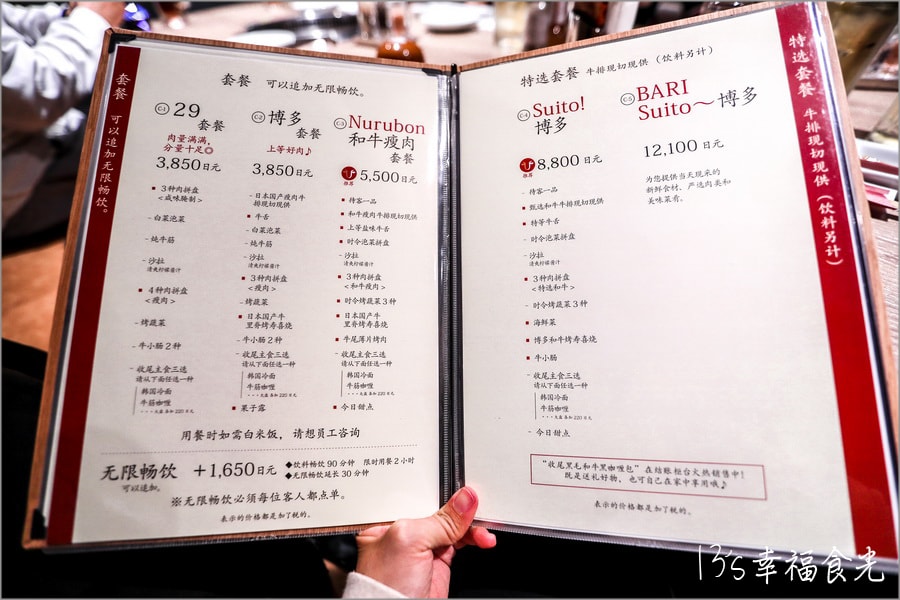 套餐 可以追加无限畅饮。
套餐 可以追加无限畅饮。
C-1 29
套餐
肉量满满,
分量十足◎
3,850日元
3种肉拼盘
<咸味腌制>
白菜泡菜
炖牛筋
沙拉
清爽柠檬酱汁
4种肉拼盘
<瘦肉>
烤蔬菜
牛小肠2种
收尾主食三选
请从下面任选一种
韩国冷面
牛筋咖喱
・・・大盛 各加 220日元
C-2 博多
套餐
上等好肉♪
3,850日元
日本国产瘦肉牛
排现切现供
牛舌
白菜泡菜
炖牛筋
沙拉
清爽柠檬酱汁
3种肉拼盘
<瘦肉>
烤蔬菜
日本国产牛
里脊烤寿喜烧
牛小肠2种
收尾主食三选
请从下面任选一种
韩国冷面
牛筋咖喱
・・・大盛 各加 220日元
果子露
C-3 Nurubon
和牛瘦肉
套餐
推荐 5,500日元
待客一品
和牛瘦肉牛排现切现供
上等盐味牛舌
时令泡菜拼盘
沙拉
清爽柠檬酱汁
3种肉拼盘
<和牛瘦肉>
时令烤蔬菜3种
日本国产牛
里脊烤寿喜烧
牛尾薄片烤肉
收尾主食三选
请从下面任选一种
韩国冷面
牛筋咖喱
・・・大盛 各加 220日元
今日甜点
用餐时如需白米饭，请想员工咨询
无限畅饮 +1,650日元
可以追加。
◆饮料畅饮90分钟 限时用餐2小时
◆无限畅饮延长30分钟
※无限畅饮必须每位客人都点单。
表示的价格都是加了税的。
特选套餐 牛排现切现供（饮料另计）
特选套餐 牛排现切现供（饮料另计）
C-4 Suito!
博多
推荐 8,800日元
待客一品
甄选和牛牛排现切现供
特等牛舌
时令泡菜拼盘
沙拉
清爽柠檬酱汁
3种肉拼盘
<特选和牛>
时令烤蔬菜3种
海鲜菜
博多和牛烤寿喜烧
牛小肠
收尾主食三选
请从下面任选一种
韩国冷面
牛筋咖喱
・・・大盛 各加 220日元
今日甜点
C-5 BARI
Suito～博多
12,100日元
为您提供当天现来的
新鲜食材，严选肉类和
美味菜肴。
“收尾黑毛和牛黑咖喱包”在结账柜台火热销售中!
既是送礼好物，也可自己在家中享用哦♪
表示的价格都是加了税的。
13's幸福食光